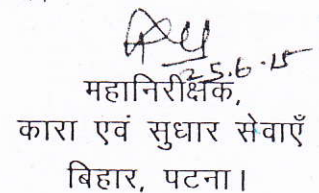 25.6.15
महानिरीक्षक,
कारा एवं सुधार सेवाएँ
बिहार, पटना।